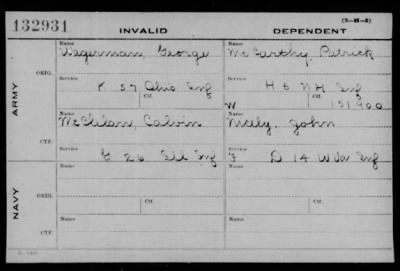 132931 INVALID DEPENDENT (3-H-3)
Name Wagerman, George Name McCarthy, Patrick
ARMY ORIG. Service K 57 Ohio Inf Service H 5 N H Inf
Ctf. Ctf.
W 151900
Name McClelan, Calvin Name Nicely, John
CTF. Service G 26 Ill Inf Service F D 14 W Va Inf
NAVY ORIG. Name Name
Service Ctf. Service Ctf.
CTF. Name Name